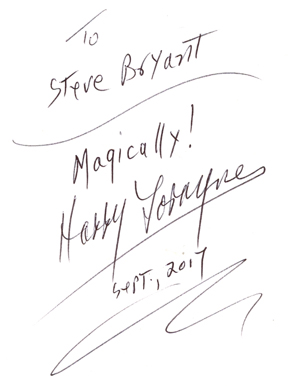 To
Steve Bryant
Magically!
Harry Lorayne
Sept., 2017